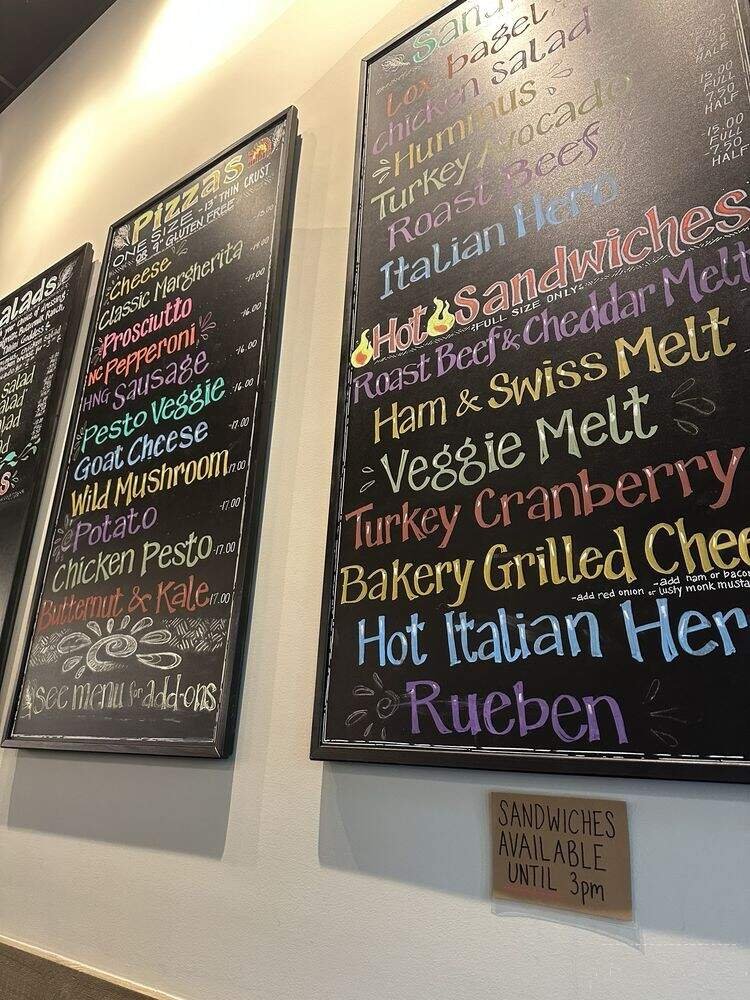 alads
salad
alad
alad
Pizzas
ONE SIZE - 13" THIN CRUST
OR 9" GLUTEN FREE
Cheese -13.00
Classic Margherita -14.00
Prosciutto -17.00
NC Pepperoni -16.00
HNG Sausage -16.00
Pesto Veggie -16.00
Goat Cheese -17.00
Wild Mushroom -17.00
Potato -17.00
Chicken Pesto -17.00
Butternut & Kale -17.00
see menu for add-ons
Sand
Lox bagel
chicken salad
Hummus
Turkey Avocado
Roast Beef
Italian Hero
HALF
15.00 FULL
7.50 HALF
-15.00 FULL
-7.50 HALF
Hot Sandwiches
*FULL SIZE ONLY*
Roast Beef & Cheddar Melt
Ham & Swiss Melt
Veggie Melt
Turkey Cranberry
Bakery Grilled Chee
-add ham or baco
-add red onion or lusty monk musta
Hot Italian Her
Rueben
SANDWICHES
AVAILABLE
UNTIL 3pm